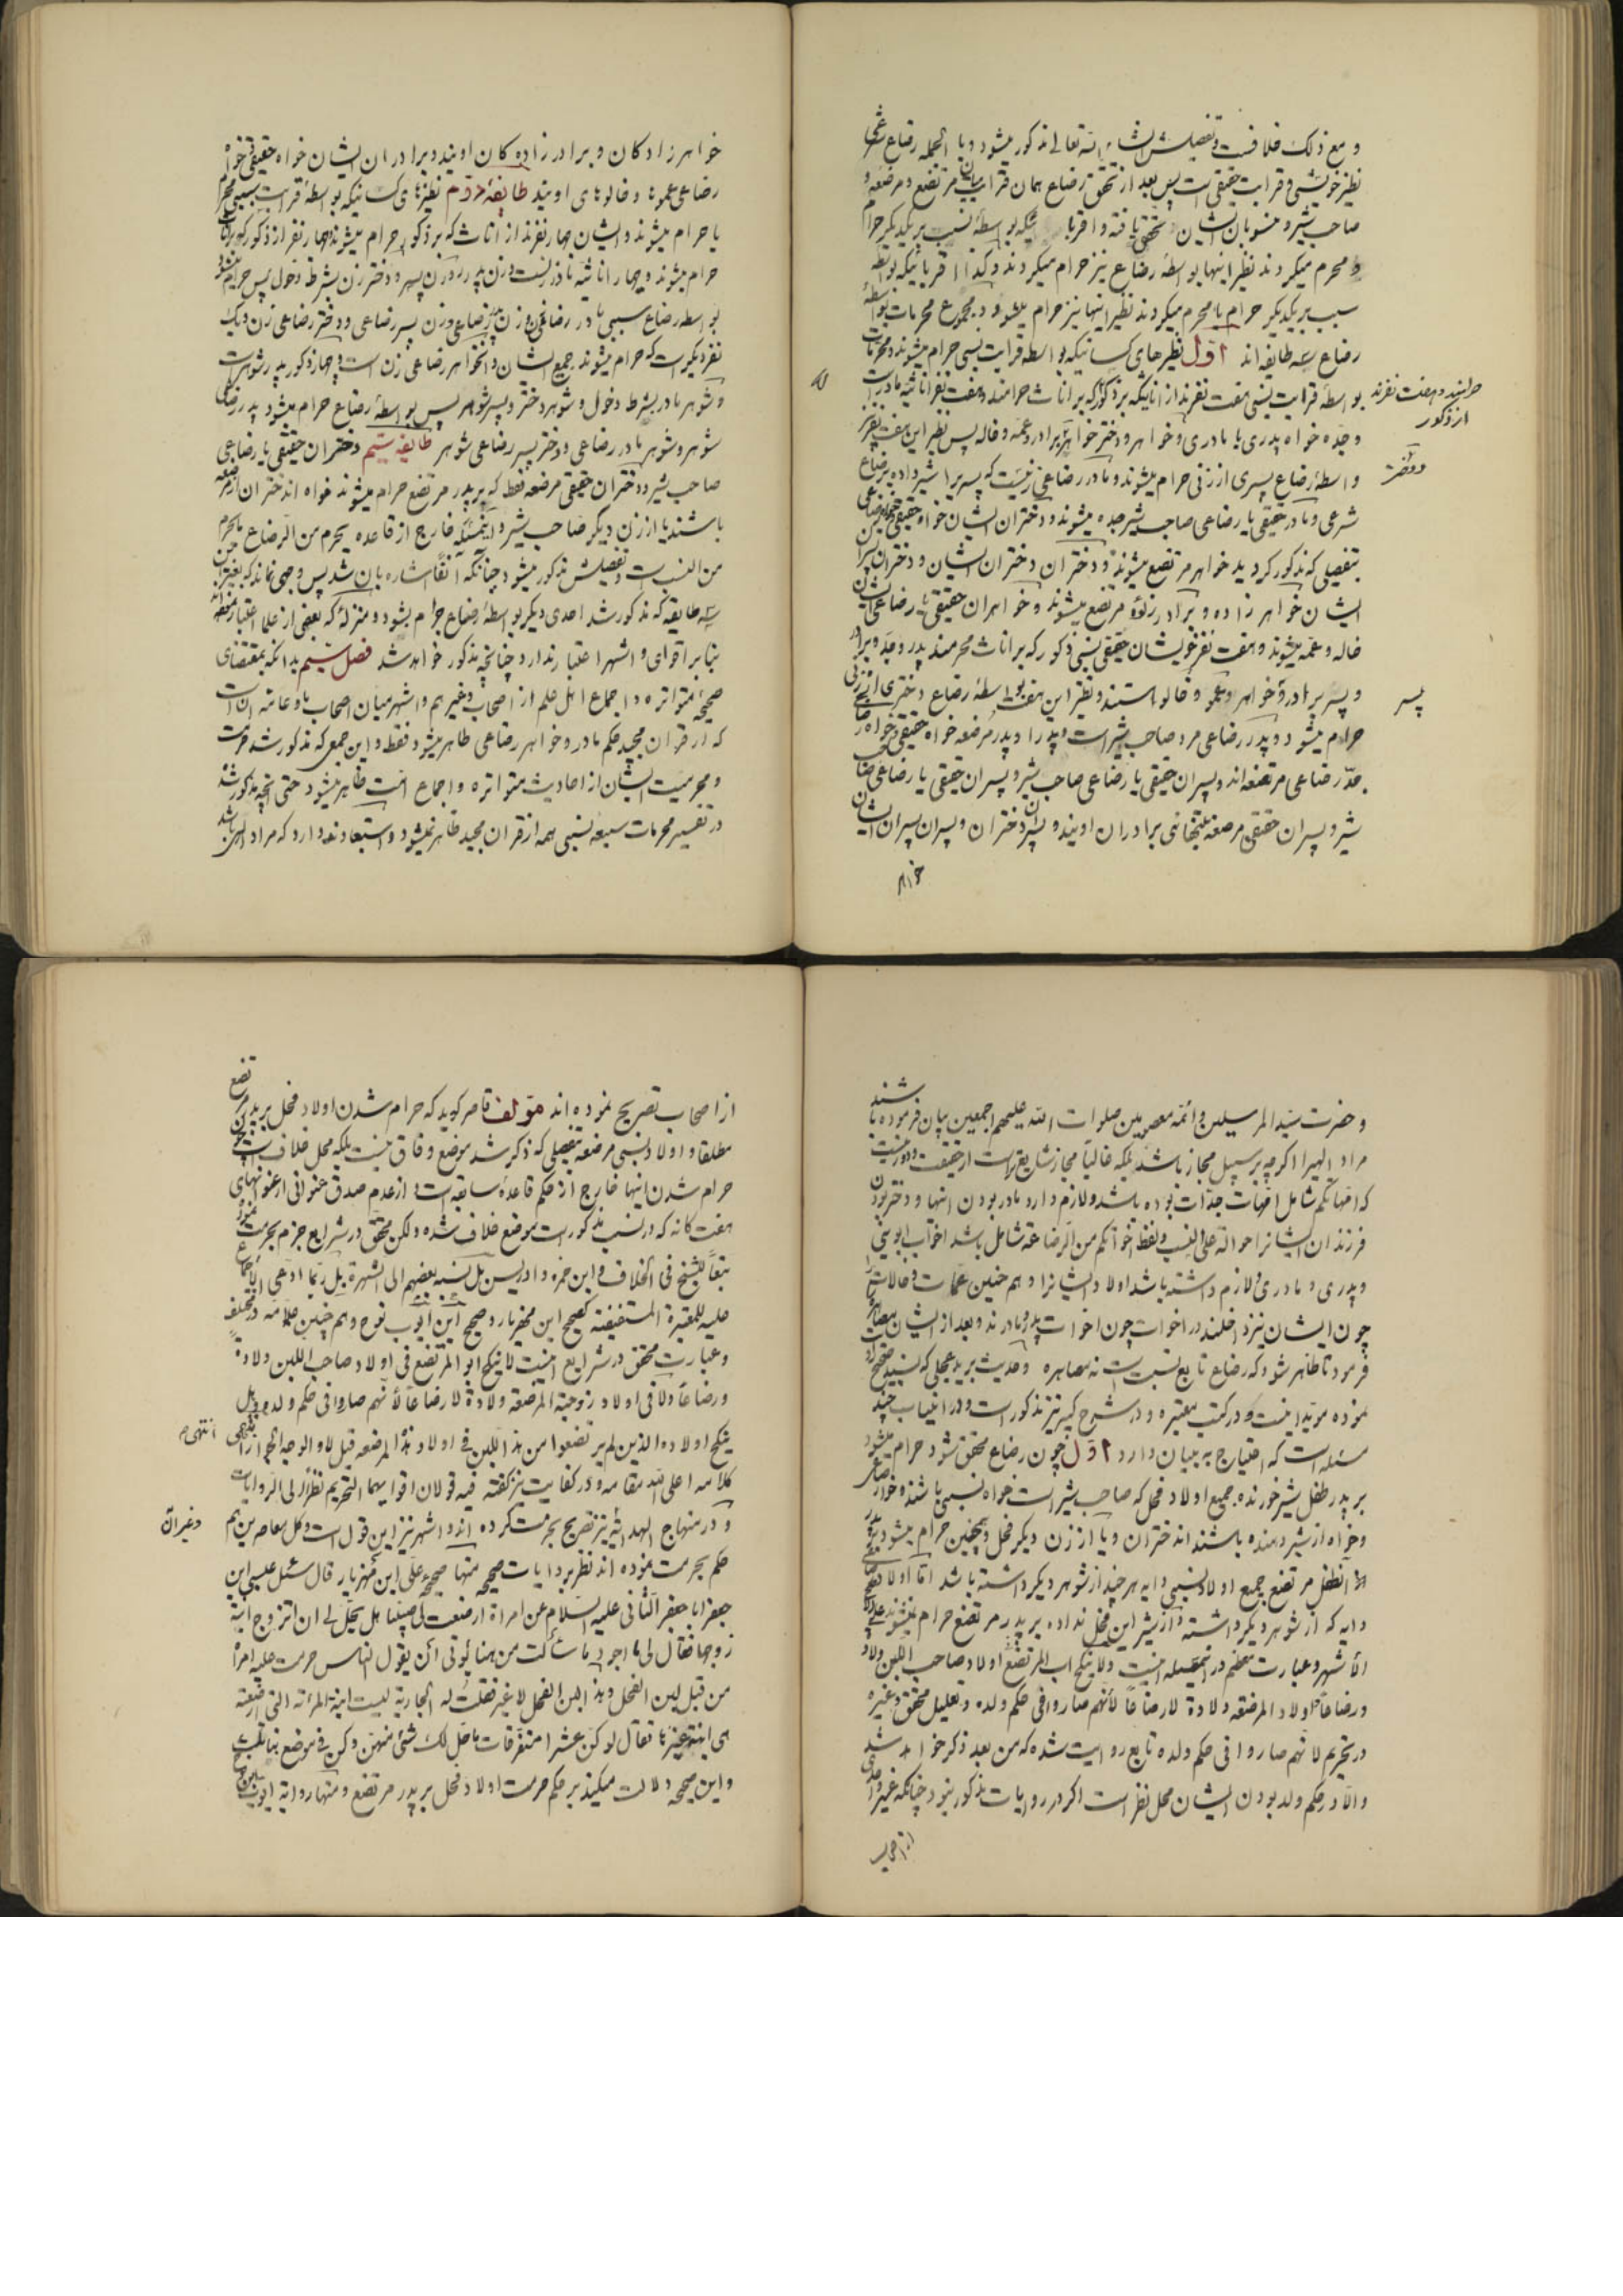 و مع ذلک خلافست و تفصیلش انشاء الله تعالی مذکور میشود و بالجمله رضاع شرعی
نظیر خویشی و قرابت حقیقی است پس بعد از تحقق رضاع همان قرابت میان مرتضع و مرضعه و
صاحب شیر و منسوبان ایشان تحقق یافته و اقربا بواسطهٔ نسب بر یکدیگر حرام
و محرم میکردند نظیر اینها بواسطهٔ رضاع نیز حرام میکردند و کذا اقربائیکه بواسطهٔ
سبب بر یکدیکر حرام یا محرم میکردند نظیر اینها نیز حرام میشود و مجموع محرمات بواسطهٔ
رضاع سه طایفه اند اوّل نظیرهای کسانیکه بواسطه قرابت نسبی حرام میشوند و محرمات
بواسطهٔ قرابت نسبی هفت نفرند از اناثیکه بر ذکور که بر اناث حرامند و هفت نفر اناثیه مادرست
حرامند و هفت نفرند
از ذکور
و جدّه خواه پدری یا مادری و خواهر و دختر خواهر و برادر و عمّه و خاله پس نظیر این هفت نفر نیز
واسطهٔ رضاع پسری از زنی حرام میشوند و مادر رضاعی زنیست که پسر را شیر داده برضاع
شرعی و مادر حقیقی یا رضاعی صاحب شیر جده میشوند و دختران ایشان خواه حقیقی خواه رضاعی
بتفصیلی که مذکور کردید خواهر مرتضع میشوند و دختران دختران ایشان و دختران پسران
ایشان خواهرزاده و برادرزادهٔ مرتضع میشوند و خواهران حقیقی یا رضاعی ایشان
خاله و عمّه میشوند و هفت نفر خویشان حقیقی نسبی ذکور که بر اناث محرمند پدر و جدّ و برادر
و پسر برادر و خواهر و عمو و خالو هستند و نظیر این هفت بواسطهٔ رضاع دختری از زنی
پسر
حرام میشود و پدر رضاعی مرد صاحب شیر است و پدر او پدر مرضعه خواه حقیقی خواه رضاعی
جدّ رضاعی مرتضعه اند و پسران حقیقی یا رضاعی صاحب شیر و پسران حقیقی یا رضاعی صاحب
شیر و پسران حقیقی مرضعه برادران اویند و پسران دختران و پسران پسران ایشان
خواهر
خواهرزادکان و برادرزاده کان اویند و برادران ایشان خواه حقیقی خواه
رضاعی عموها و خالوهای اویند طایفهٔ دوّم نظیرهای کسانیکه بواسطهٔ قرابت سببی محرم
یا حرام میشوند و ایشان چهار نفرند از اناث که بر ذکور حرام میشوند و چهار نفر از ذکور که بر اناث
حرام میشوند و چهار اناثیه مادر زنست و زن پدر و زن پسر و دختر زن بشرط دخول پس حرام میشود
بواسطه رضاع سببی مادر رضاعی زن و زن پدر رضاعی و زن پسر رضاعی و دختر رضاعی زن و یک
نفر دیکر است که حرام میشوند جمیع ایشان و آن خواهر رضاعی زن است و چهار ذکور پدر شوهرست
و شوهر مادر بشرط دخول و شوهر دختر و پسر شوهر پس بواسطهٔ رضاع حرام میشود پدر رضاعی
شوهر و شوهر مادر رضاعی و دختر پسر رضاعی شوهر طایفهٔ سیّم دختران حقیقی یا رضاعی
صاحب شیر و دختران حقیقی مرضعه فقط که بر پدر مرتضع حرام میشوند خواه اند دختران از مرضعه
باشند یا از زن دیکر صاحب شیر و این مسئله خارج از قاعده یحرم من الرضاع ما یحرم
من النسب است و تفصیلش مذکور میشود چنانکه آنفا اشاره بان شد پس وجهی نماند که بغیر از این
سه طایفه که مذکور شد احدی دیکر بواسطهٔ رضاع حرام بشود و منزله که بعضی از علما اعتبار نموده‌اند
بنابر اقوای و اشهر اعتبار ندارد و چنانچه مذکور خواهد شد فصل سیّم بدانکه بمقتضای
صحیحه متواتره و اجماع اهل علم از اصحاب و غیرهم و اشهر میان اصحاب ما و عامّه آن است
که از قران مجید حکم مادر و خواهر رضاعی ظاهر میشود فقط و این جمعی که مذکور شد حرمت
و محرمیت ایشان از احادیث متواتره و اجماع امّت ظاهر میشود حتی آنچه مذکور شد
در تفسیر محرمات سبعه نسبی همه از قران مجید ظاهر نمیشود و استبعاد ندارد که مراد الهی باشد
و حضرت سیّد المرسلین و ائمّه معصومین صلوات الله علیهم اجمعین بیان فرموده باشند
مراد الهی را اکرچه بر سبیل مجاز باشد بلکه غالباً مجاز شایع تر است از حقیقت و دور نیست
که امّهاتکم شامل امّهات جدّات بوده باشد و لازم دارد مادر بودن اینها و دختر بودن
فرزندان ایشانرا حوالة علی النسب و لفظ اخواتکم من الرضاعة شامل باشد اخوات ابوینی
و پدری و مادری و لازم داشته باشد اولاد ایشانرا و هم چنین عمّات و خالات را
چون ایشان نیز داخلند در اخوات چون اخوات پدر و مادرند و بعد از ایشان
فرمود تا ظاهر شود که رضاع تابع نسب است نه مصاهره و حدیث برید عجلی که
نموده مؤید اینست و در کتب معتبره و در شرح کبیر نیز مذکور است و در اینباب چند
مسئله است که احتیاج به بیان دارد اوّل چون رضاع محقق شود حرام میشود
بر پدر طفل شیر خورنده جمیع اولاد فحل که صاحب شیر است خواه نسبی باشند و خواه رضاعی
و خواه از شیر دهنده باشند اند دختران و یا از زن دیکر فحل و همچنین حرام میشود بر پدر
آنطفل مرتضع جمیع اولاد نسبی دایه هر چند از شوهر دیکر داشته باشد امّا اولاد رضاعی
دایه که از شوهر دیکر داشته و از شیر این فحل نداده بر پدر مرتضع حرام نمیشوند علی
الاشهر و عبارت معظم در اینمسئله اینست و لا ینکح اب المرتضع اولاد صاحب اللبن ولادة
و رضاعاً و اولاد المرضعة ولادة لا رضاعاً لأنهم صاروا فی حکم ولده و تعلیل محقق و غیره
در تحریم لانهم صاروا فی حکم ولده تابع روایت شده که من بعد ذکر خواهد شد
والّا در حکم ولد بودن ایشان محل نظر است اکر در روایات مذکور نبود چنانکه غیر واحدی
از اصحاب
از اصحاب تصریح نموده اند مؤلف قاصر کوید که حرام شدن اولاد فحل بر پدر مرتضع
مطلقا و اولاد نسبی مرضعه بتفصیلی که ذکر شد موضع وفاق نیست بلکه محل خلاف است چون
حرام شدن اینها خارج از حکم قاعدهٔ سابقه است از عدم صدق عنوانی از عنوانهای
هفت کانه که در نسب مذکور است موضع خلاف شده ولکن محقق در شرایع جزم بحرمت نموده
تبعاً للشیخ فی الخلاف و ابن حمزه و ادریس بل نسبه بعضهم الی الشهرة بل ربّما ادّعی الاجماع
علیه للمعتبرة المستفیضة کصحیح ابن مهزیار و صحیح ابن ایوب نوح و هم چنین علّامه در مختلف
و عبارت محقق در شرایع اینست لا ینکح ابو المرتضع فی اولاد صاحب اللبن ولادة
و رضاعاً و لا فی اولاد زوجته المرضعة ولادة لا رضاعاً لأنهم صاروا فی حکم ولده و هل
ینکح اولاده الذین لم یرتضعوا من هذا اللبن فی اولاد هذه المرضعه قیل لا و الوجه الجواز انتهی
انتهی م
کلامه اعلی الله مقامه و در کفایت نیز کفته فیه قولان اقوایهما التحریم نظراً الی الروایات
و در منهاج الهدایه نیز تصریح بحرمت کرده اند و اشهر نیز این قول است و کل معاصرین هم
و غیر آن
حکم بحرمت نموده اند نظر بروایات صحیحه منها صحیحهٔ علی ابن مهزیار قال سئل عیسی ابن
جعفر ابا جعفر الثانی علیه السلام عن امراة ارضعت لی صبیّا هل یحلّ لی ان اتزوج ابنة
زوجها فقال لی ما اجود ما سألت من هنا یؤتی ان یقول الناس حرمت علیه امراة
من قبل لبن الفحل و هذا لبن الفحل لا غیر فقلت له الجاریة لیست ابنة المرأة التی ارضعته
هی ابنة غیرها فقال لو کن عشرا متفرقات ما حل لک شئ منهن و کن فی موضع بناتک
و این صحیحه دلالت میکند بر حکم حرمت اولاد فحل بر پدر مرتضع و منها روایة ایوب بن نوح